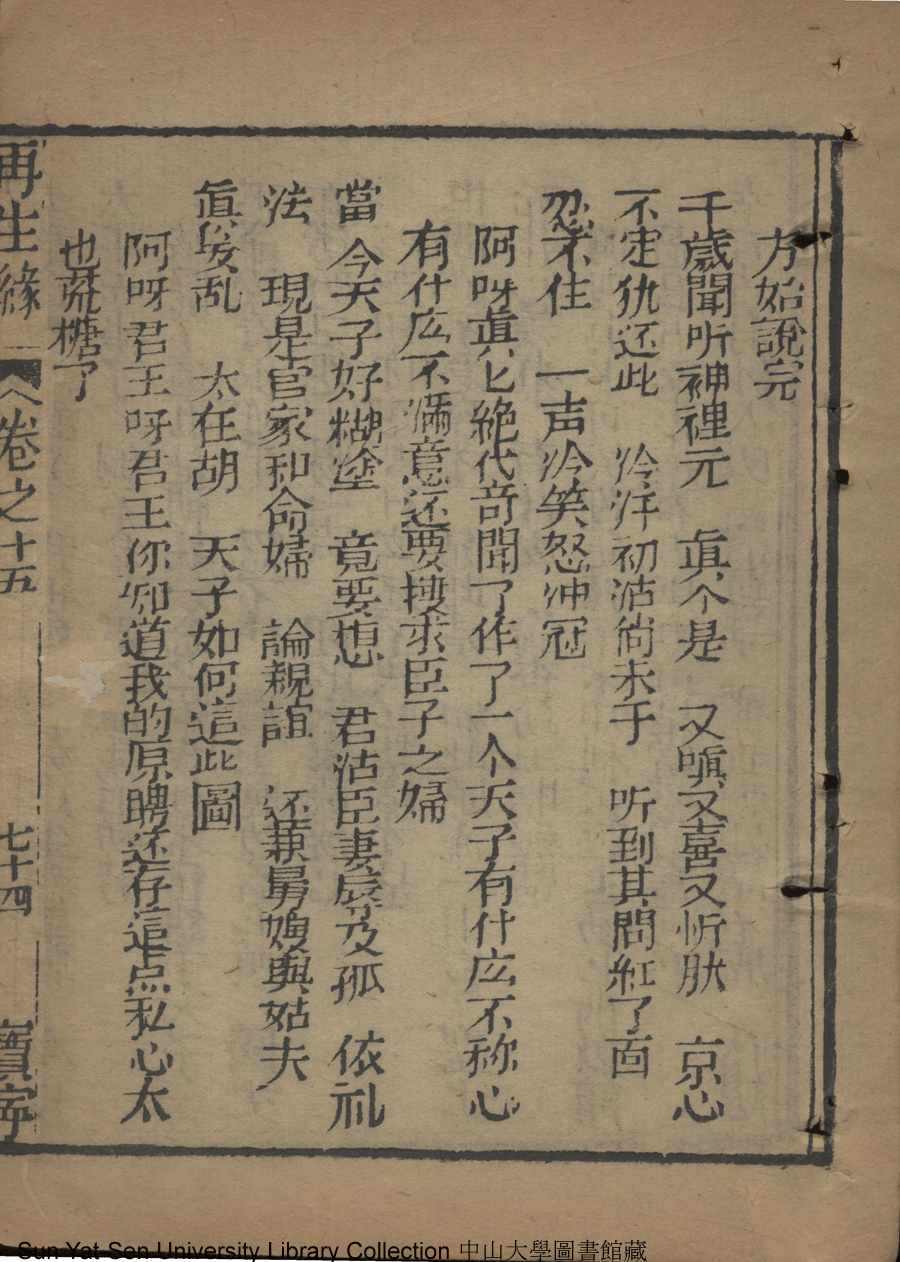 方始說完
千歲聞听神裡元　眞个是　又嗔又喜又忻肰　京心
不定犹还此　冷汗初沽尙未于　听到其間紅了面
忍不住　一声冷笑怒冲冠
阿呀眞化絶代奇聞了作了一个天子有什庅不称心
有什庅不滿意还要搜求臣子之婦
當今天子好糊塗　竟要想　君沾臣妻辱及孤　依礼
法　現是官家和命婦　論親誼　还兼舅嫂與姑夫
眞乱　太在胡　天子如何這此圖
阿呀君王呀君王你知道我的原聘还存這点私心太
也荒糖了
再生緣　卷之十五　七十四　寶寧
Sun Yat-Sen University Library Collection 中山大學圖書館藏